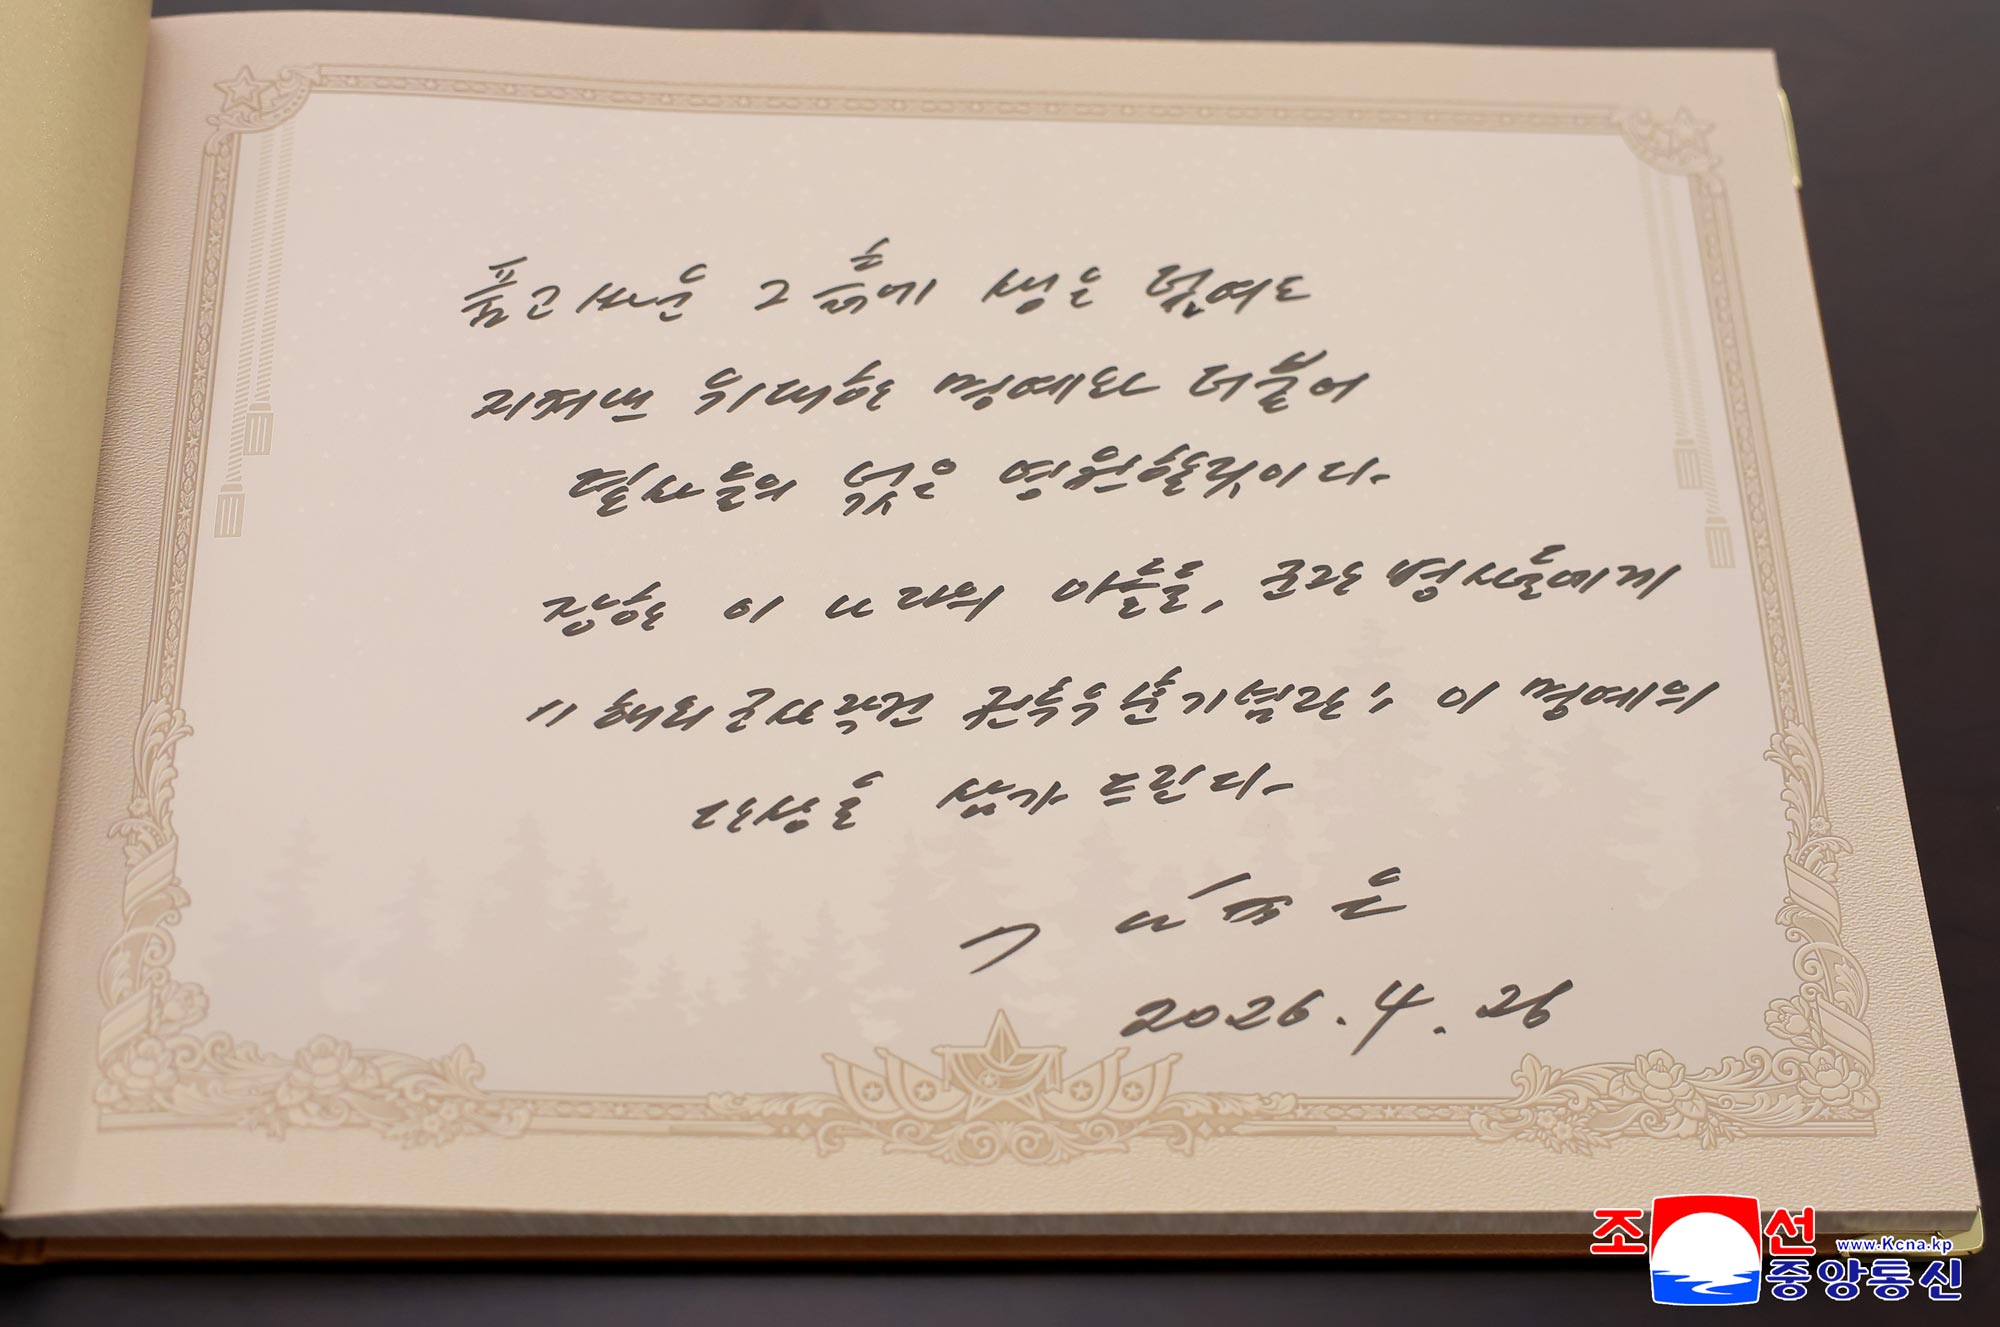 품고싸운 그 흙에 생은 덮여도
지켜낸 위대한 명예와 더불어
렬사들의 넋은 영원할것이다.
장한 이 나라의 아들들, 군관병사들에게
"해외군사작전 전투위훈기념관" 이 명예의
단상을 삼가 드린다.
김정은
2026.4.26
조선
www.kcna.kp
중앙통신